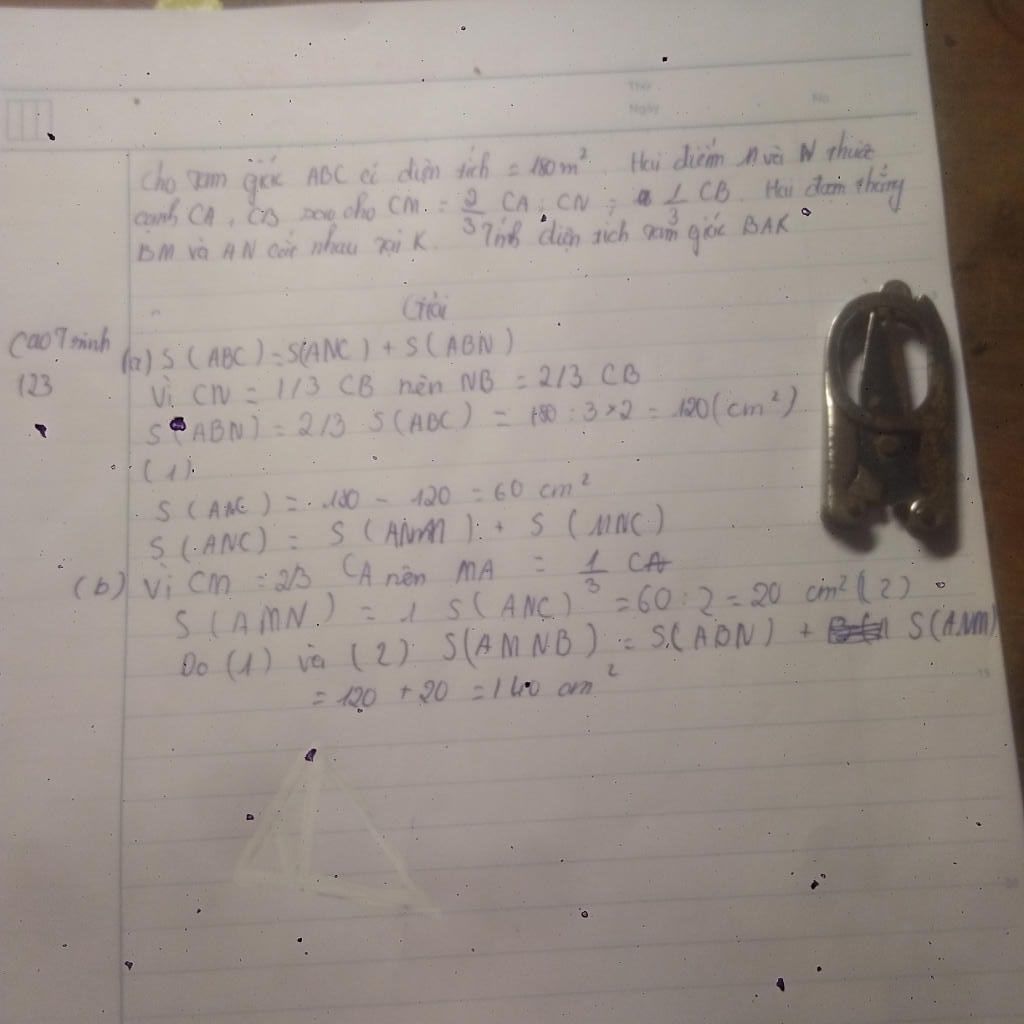 Thứ
Ngày
No
Cho tam giác ABC có diện tích = 180m². Hai điểm M và N thuộc
cạnh CA, CB sao cho CM = 2/3 CA; CN = 1/3 CB. Hai đoạn thẳng
BM và AN cắt nhau tại K. Tính diện tích tam giác BAK
Giải
Cao Trinh
123
(a) S(ABC) = S(ANC) + S(ABN)
Vì CN = 1/3 CB nên NB = 2/3 CB
S(ABN) = 2/3 S(ABC) = 180 : 3 × 2 = 120 (cm²)
(1)
S(ANC) = 180 - 120 = 60 cm²
S(ANC) = S(ANM) + S(MNC)
(b) Vì CM = 2/3 CA nên MA = 1/3 CA
S(AMN) = 1 S(ANC) = 60 : 2 = 20 cm² (2)
Do (1) và (2) S(AMNB) = S(ABN) + S(ANM)
= 120 + 20 = 140 cm²